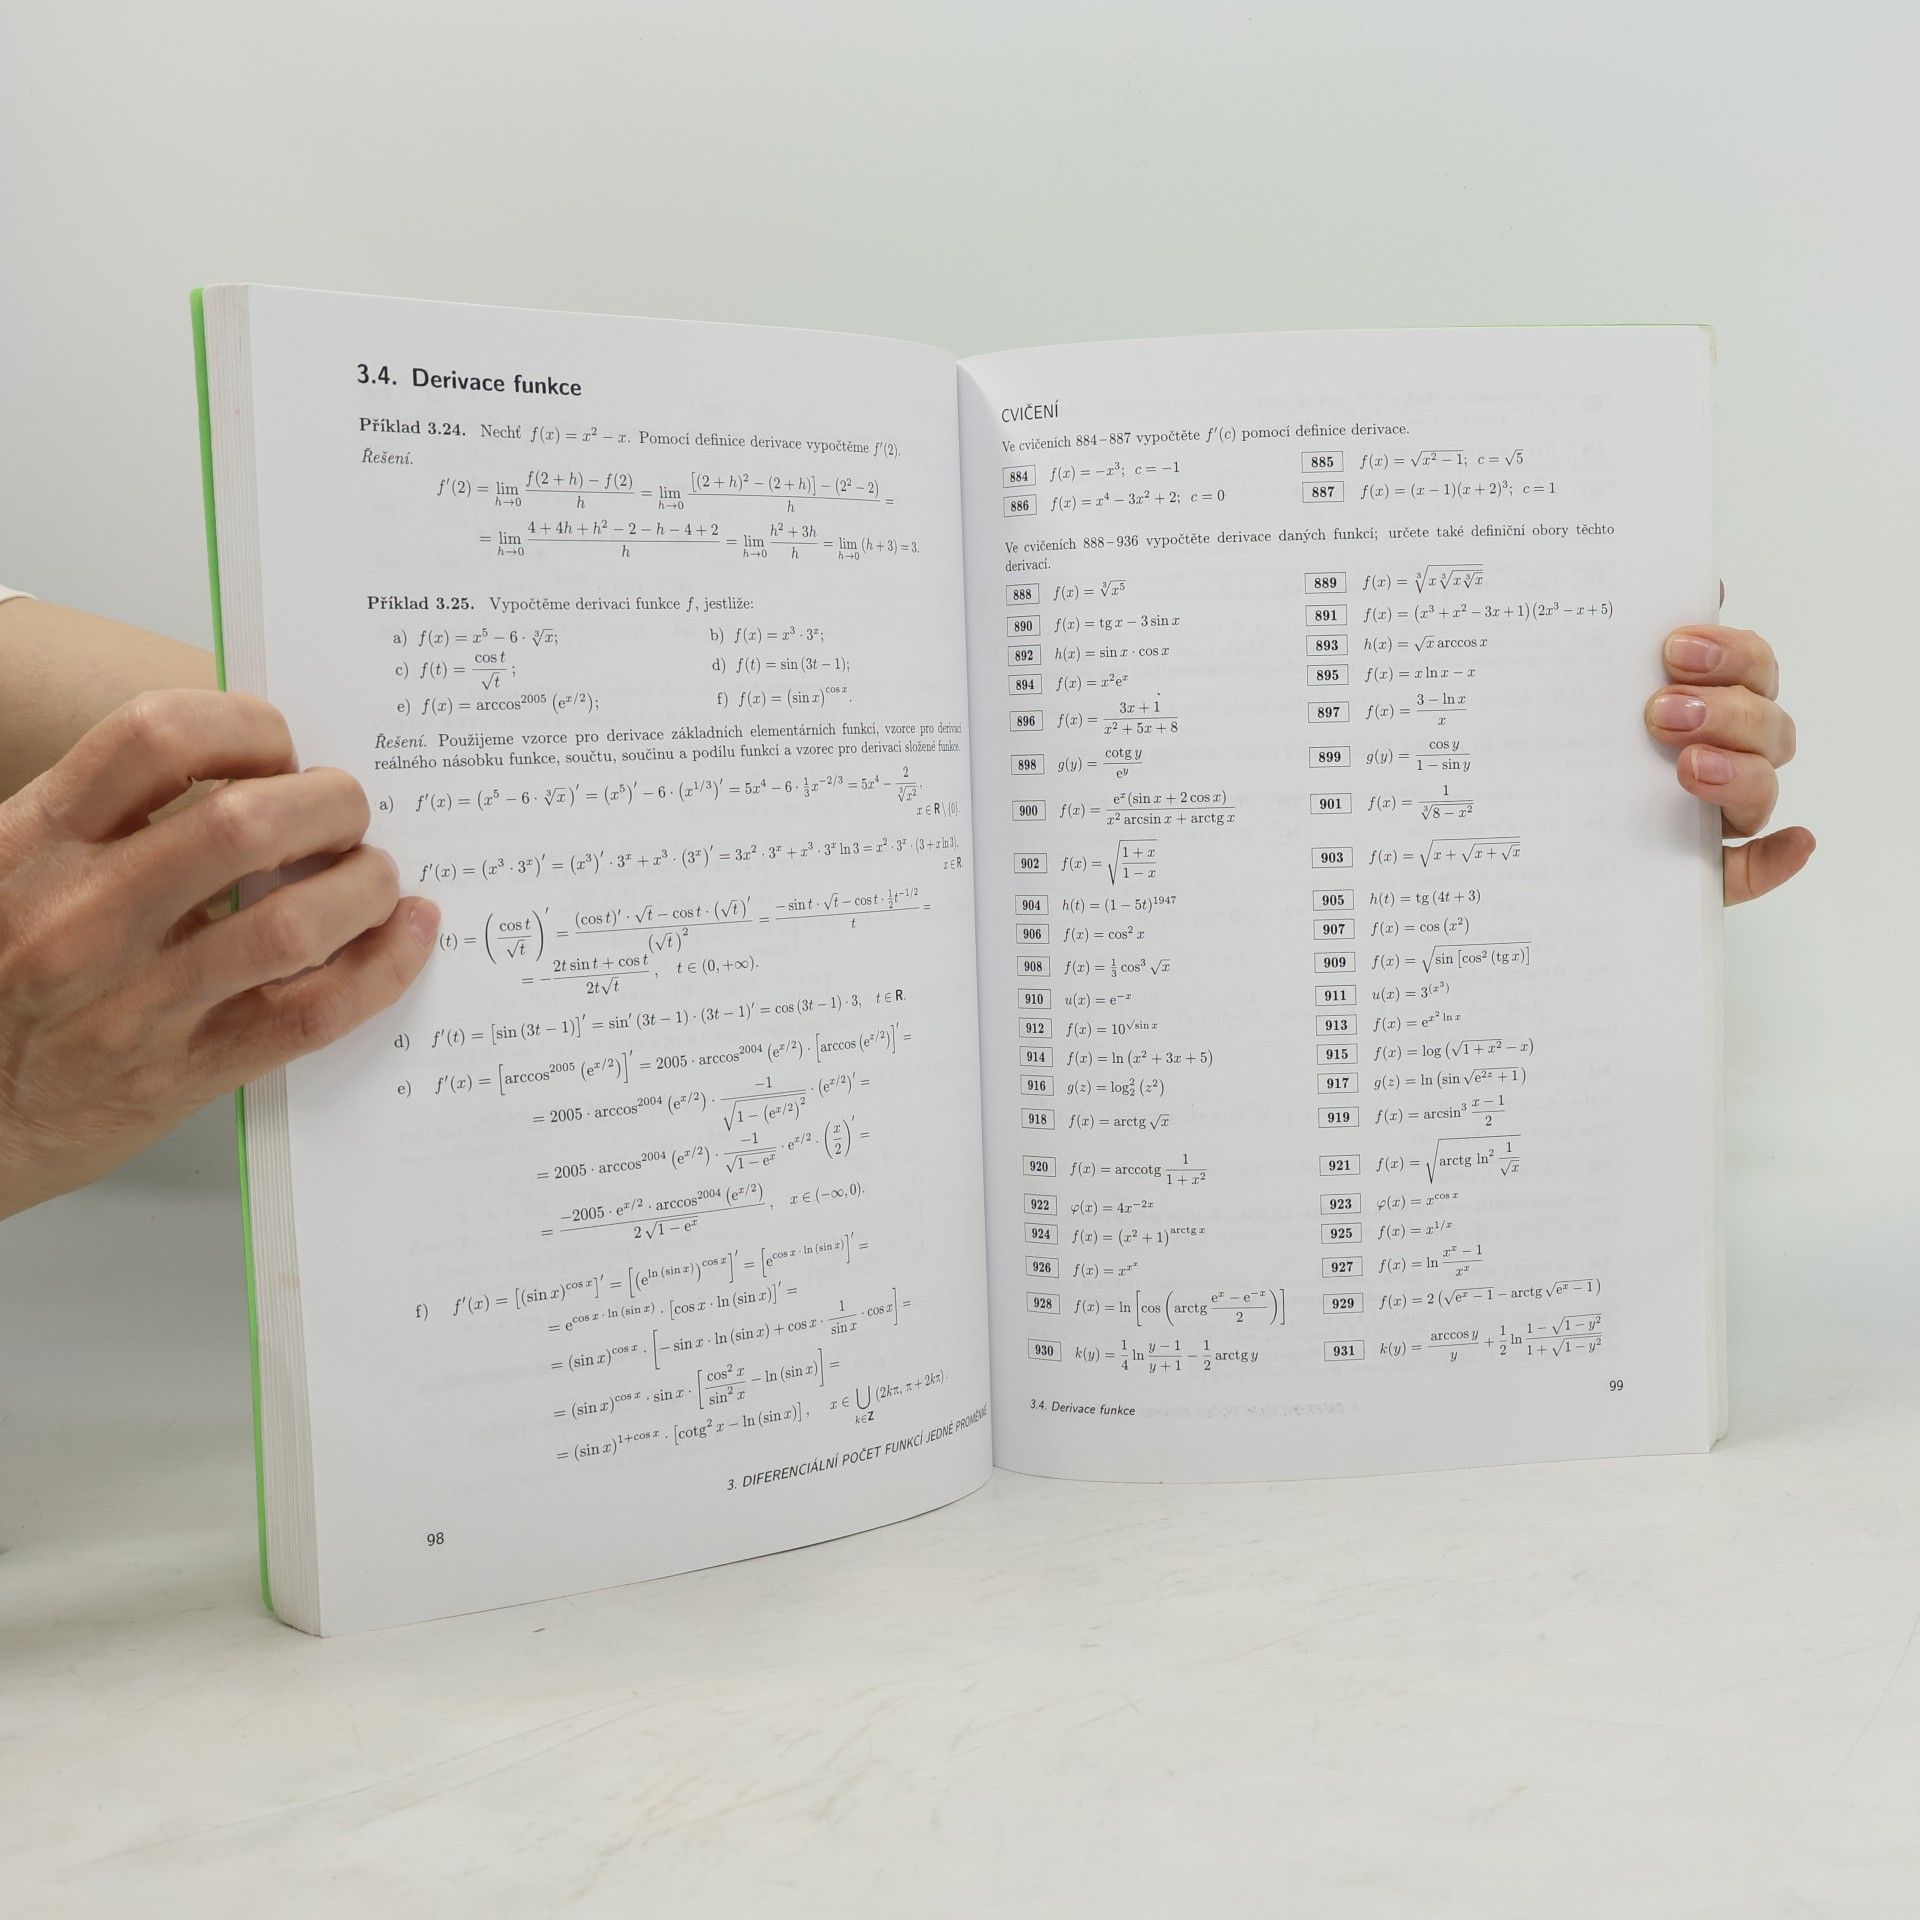 3.4. Derivace funkce
Příklad 3.24. Nechť f(x) = x² − x. Pomocí definice derivace vypočtěme f′(2).
Řešení.
f′(2) = lim_{h→0} (f(2 + h) − f(2))/h = lim_{h→0} ([(2 + h)² − (2 + h)] − (2² − 2))/h =
= lim_{h→0} (4 + 4h + h² − 2 − h − 4 + 2)/h = lim_{h→0} (h² + 3h)/h = lim_{h→0} (h + 3) = 3.
Příklad 3.25. Vypočtěme derivaci funkce f, jestliže:
a) f(x) = x⁵ − 6 · ∛x; b) f(x) = x³ · 3ˣ;
c) f(t) = cos t/√t; d) f(t) = sin (3t − 1);
e) f(x) = arccos²⁰⁰⁵ (e^{x/2}); f) f(x) = (sin x)^{cos x}.
Řešení. Použijeme vzorce pro derivace základních elementárních funkcí, vzorce pro derivaci
reálného násobku funkce, součtu, součinu a podílu funkcí a vzorec pro derivaci složené funkce.
a) f′(x) = (x⁵ − 6 · ∛x)′ = (x⁵)′ − 6 · (x^{1/3})′ = 5x⁴ − 6 · ⅓x^{−2/3} = 5x⁴ − 2/∛(x²),
x ∈ R \ {0}.
f′(x) = (x³ · 3ˣ)′ = (x³)′ · 3ˣ + x³ · (3ˣ)′ = 3x² · 3ˣ + x³ · 3ˣ ln 3 = x² · 3ˣ · (3 + x ln 3),
x ∈ R.
(t) = (cos t/√t)′ = ((cos t)′ · √t − cos t · (√t)′)/(√t)² = (− sin t · √t − cos t · ½t^{−1/2})/t =
= − (2t sin t + cos t)/(2t√t), t ∈ (0, +∞).
d) f′(t) = [sin (3t − 1)]′ = sin′ (3t − 1) · (3t − 1)′ = cos (3t − 1) · 3, t ∈ R.
e) f′(x) = [arccos²⁰⁰⁵ (e^{x/2})]′ = 2005 · arccos²⁰⁰⁴ (e^{x/2}) · [arccos (e^{x/2})]′ =
= 2005 · arccos²⁰⁰⁴ (e^{x/2}) · −1/√(1 − (e^{x/2})²) · (e^{x/2})′ =
= 2005 · arccos²⁰⁰⁴ (e^{x/2}) · −1/√(1 − eˣ) · e^{x/2} · (x/2)′ =
= (−2005 · e^{x/2} · arccos²⁰⁰⁴ (e^{x/2}))/(2√(1 − eˣ)), x ∈ (−∞, 0).
f) f′(x) = [(sin x)^{cos x}]′ = [(e^{ln (sin x)})^{cos x}]′ = [e^{cos x · ln (sin x)}]′ =
= e^{cos x · ln (sin x)} · [cos x · ln (sin x)]′ =
= (sin x)^{cos x} · [− sin x · ln (sin x) + cos x · 1/sin x · cos x] =
= (sin x)^{cos x} · sin x · [cos² x/sin² x − ln (sin x)] =
= (sin x)^{1+cos x} · [cotg² x − ln (sin x)], x ∈ ⋃_{k∈Z} (2kπ, π + 2kπ).
3. DIFERENCIÁLNÍ POČET FUNKCÍ JEDNÉ PROMĚNNÉ
98
CVIČENÍ
Ve cvičeních 884–887 vypočtěte f′(c) pomocí definice derivace.
884 f(x) = −x³; c = −1 885 f(x) = √(x² − 1); c = √5
886 f(x) = x⁴ − 3x² + 2; c = 0 887 f(x) = (x − 1)(x + 2)³; c = 1
Ve cvičeních 888–936 vypočtěte derivace daných funkcí; určete také definiční obory těchto
derivací.
888 f(x) = ∛(x⁵) 889 f(x) = ∛(x∛(x∛x))
890 f(x) = tg x − 3 sin x 891 f(x) = (x³ + x² − 3x + 1)(2x³ − x + 5)
892 h(x) = sin x · cos x 893 h(x) = √x arccos x
894 f(x) = x²eˣ 895 f(x) = x ln x − x
896 f(x) = (3x + 1)/(x² + 5x + 8) 897 f(x) = (3 − ln x)/x
898 g(y) = cotg y/e^y 899 g(y) = cos y/(1 − sin y)
900 f(x) = eˣ(sin x + 2 cos x)/(x² arcsin x + arctg x) 901 f(x) = 1/∛(8 − x²)
902 f(x) = √((1 + x)/(1 − x)) 903 f(x) = √(x + √(x + √x))
904 h(t) = (1 − 5t)¹⁹⁴⁷ 905 h(t) = tg (4t + 3)
906 f(x) = cos² x 907 f(x) = cos (x²)
908 f(x) = ⅓ cos³ √x 909 f(x) = √(sin [cos² (tg x)])
910 u(x) = e^{−x} 911 u(x) = 3^{(x³)}
912 f(x) = 10^{√(sin x)} 913 f(x) = e^{x² ln x}
914 f(x) = ln (x² + 3x + 5) 915 f(x) = log (√(1 + x²) − x)
916 g(z) = log₂² (z²) 917 g(z) = ln (sin √(e^{2z} + 1))
918 f(x) = arctg √x 919 f(x) = arcsin³ (x − 1)/2
920 f(x) = arccotg 1/(1 + x²) 921 f(x) = √(arctg ln² 1/√x)
922 φ(x) = 4x^{−2x} 923 φ(x) = x^{cos x}
924 f(x) = (x² + 1)^{arctg x} 925 f(x) = x^{1/x}
926 f(x) = x^{x^x} 927 f(x) = ln (xˣ − 1)/xˣ
928 f(x) = ln [cos (arctg (eˣ − e^{−x})/2)] 929 f(x) = 2 (√(eˣ − 1) − arctg √(eˣ − 1))
930 k(y) = 1/4 ln (y − 1)/(y + 1) − 1/2 arctg y 931 k(y) = arccos y/y + 1/2 ln (1 − √(1 − y²))/(1 + √(1 − y²))
3.4. Derivace funkce
99